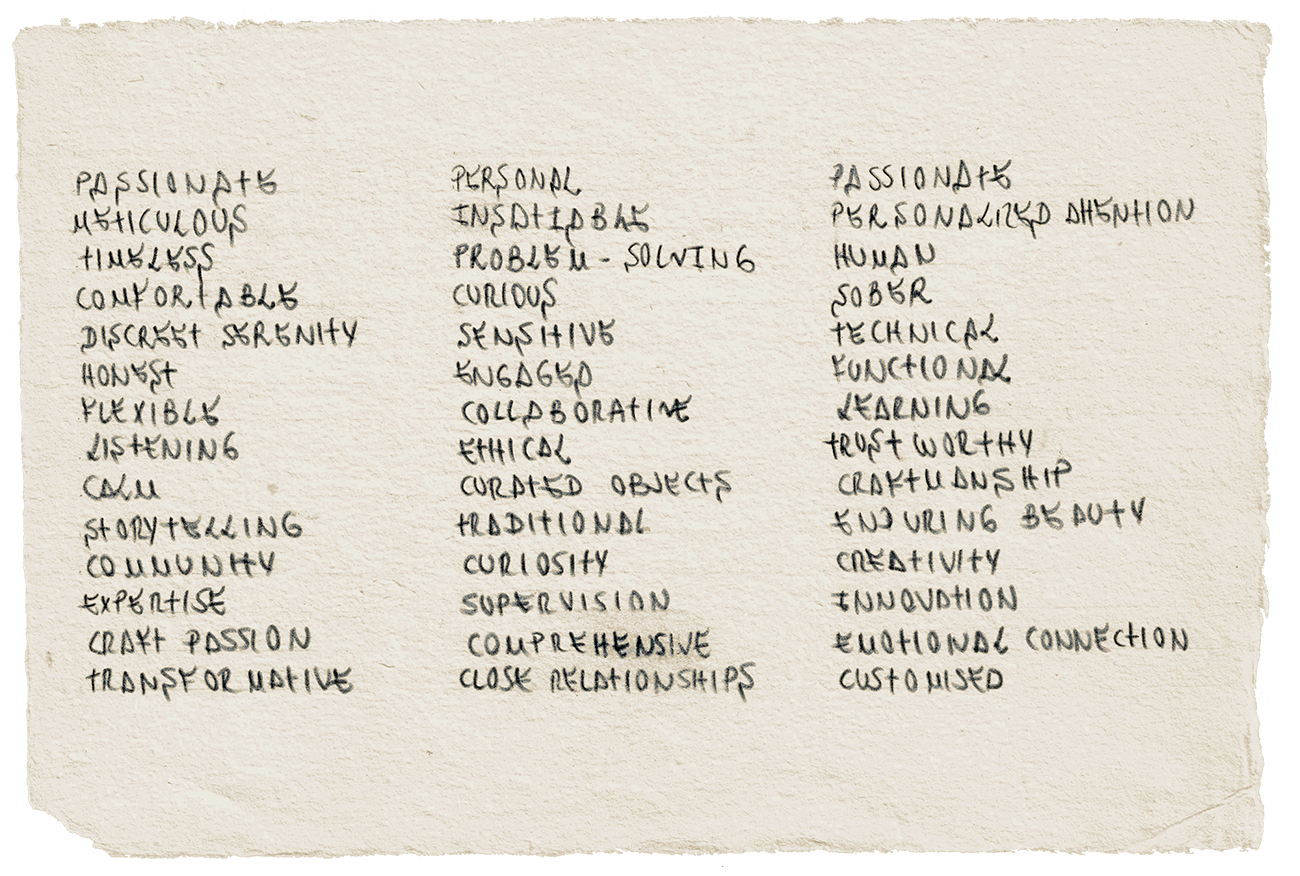 PASSIONATE
METICULOUS
TIMELESS
COMFORTABLE
DISCREET SERENITY
HONEST
FLEXIBLE
LISTENING
CALM
STORYTELLING
COMMUNITY
EXPERTISE
CRAFT PASSION
TRANSFORMATIVE
PERSONAL
INSATIABLE
PROBLEM-SOLVING
CURIOUS
SENSITIVE
ENGAGED
COLLABORATIVE
ETHICAL
CURATED OBJECTS
TRADITIONAL
CURIOSITY
SUPERVISION
COMPREHENSIVE
CLOSE RELATIONSHIPS
PASSIONATE
PERSONALIZED ATTENTION
HUMAN
SOBER
TECHNICAL
FUNCTIONAL
LEARNING
TRUSTWORTHY
CRAFTMANSHIP
ENDURING BEAUTY
CREATIVITY
INNOVATION
EMOTIONAL CONNECTION
CUSTOMISED